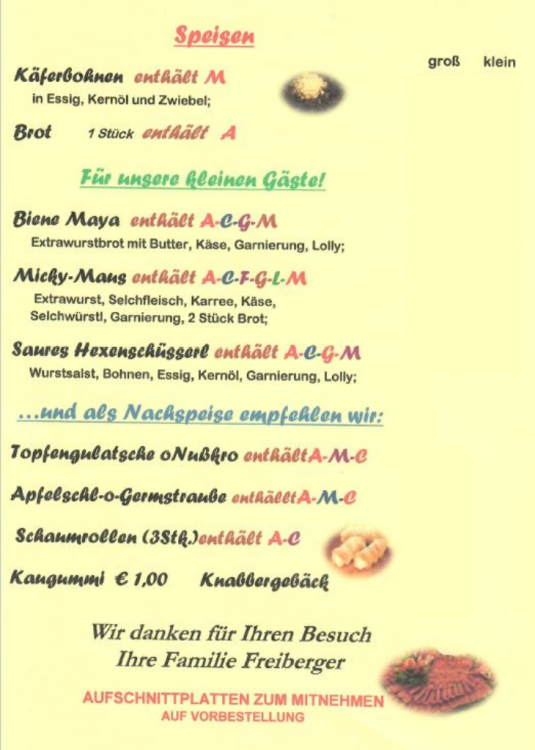 Speisen
groß klein
Käferbohnen enthält M
in Essig, Kernöl und Zwiebel;
Brot 1 Stück enthält A
Für unsere kleinen Gäste!
Biene Maya enthält A-C-G-M
Extrawurstbrot mit Butter, Käse, Garnierung, Lolly;
Micky-Maus enthält A-C-F-G-L-M
Extrawurst, Selchfleisch, Karree, Käse,
Selchwürstl, Garnierung, 2 Stück Brot;
Saures Hexenschüsserl enthält A-C-G-M
Wurstsalst, Bohnen, Essig, Kernöl, Garnierung, Lolly;
...und als Nachspeise empfehlen wir:
Topfengulatsche oNußkro enthältA-M-C
Apfelschl-o-Germstraube enthälltA-M-C
Schaumrollen (3Stk.)enthält A-C
Kaugummi € 1,00 Knabbergebäck
Wir danken für Ihren Besuch
Ihre Familie Freiberger
AUFSCHNITTPLATTEN ZUM MITNEHMEN
AUF VORBESTELLUNG